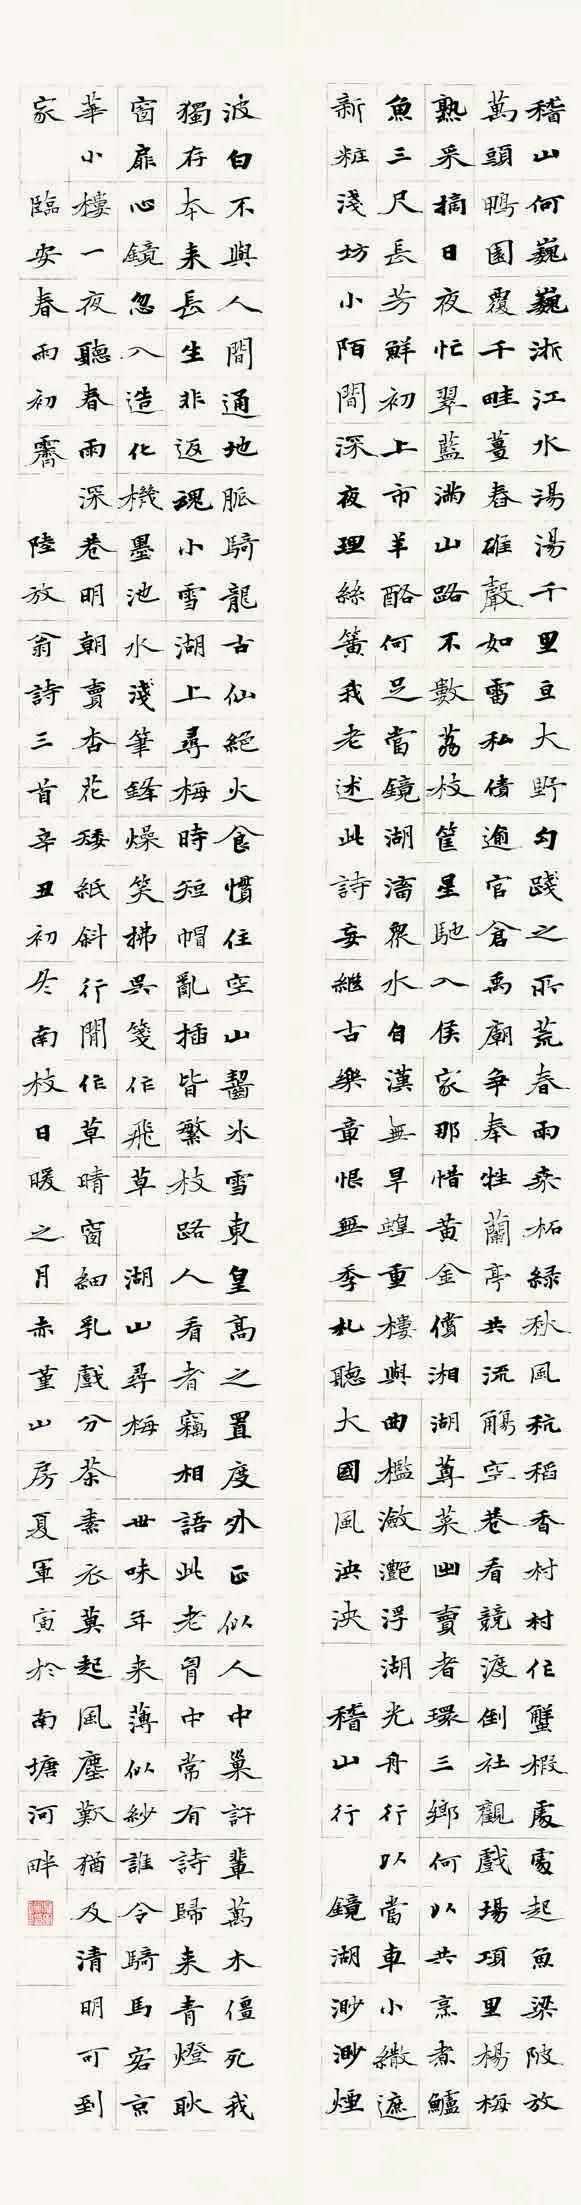 稽山何巍巍浙江水湯湯千里亘大野勾踐之所荒春雨桑柘綠秋風秔稻香村村作蟹椴處處起魚梁陂放
萬頭鴨園覆千畦薑舂碓聲如雷私債逾官倉禹廟爭奉牲蘭亭共流觴空巷看競渡倒社觀戲場項里楊梅
熟采摘日夜忙翠藍滿山路不數荔枝筐星馳入侯家那惜黃金償湘湖蓴菜出賣者環三鄉何以共烹煮鱸
魚三尺長芳鮮初上市羊酪何足當鏡湖瀦眾水自漢無旱蝗重樓與曲檻瀲灩浮湖光舟行以當車小繖遮
新粧淺坊小陌間深夜理絲簧我老述此詩妄繼古樂章恨無季札聽大國風泱泱 稽山行 鏡湖渺渺煙
波白不與人間通地脈騎龍古仙絕火食慣住空山齧冰雪東皇高之置度外正似人中巢許輩萬木僵死我
獨存本來長生非返魂小雪湖上尋梅時短帽亂插皆繁枝路人看者竊相語此老胷中常有詩歸来青燈耿
窗扉心鏡忽入造化機墨池水淺筆鋒燥笑拂吳箋作飛草 湖山尋梅 世味年来薄似紗誰令騎馬客京
華小樓一夜聽春雨深巷明朝賣杏花矮紙斜行閒作草晴窗細乳戲分茶素衣莫起風塵歎猶及清明可到
家 臨安春雨初霽 陸放翁詩三首辛丑初冬南枝日暖之月赤堇山房夏軍寅於南塘河畔